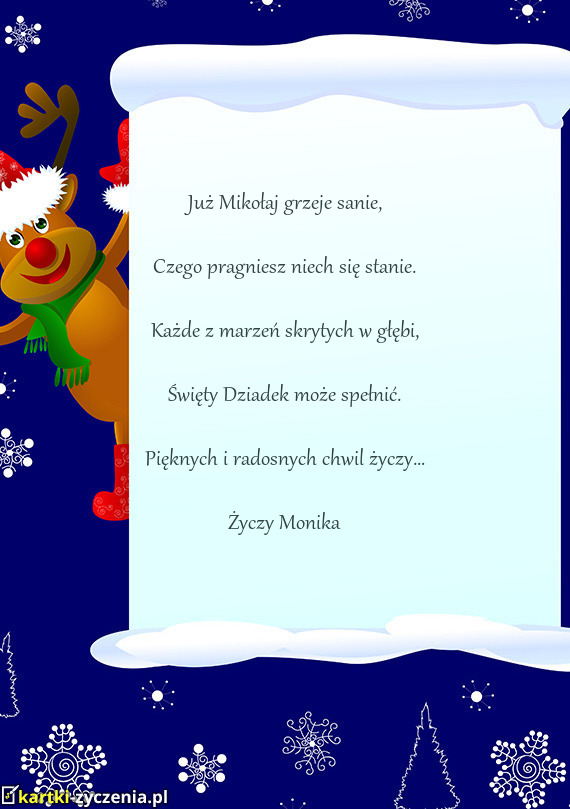 Już Mikołaj grzeje sanie,
Czego pragniesz niech się stanie.
Każde z marzeń skrytych w głębi,
Święty Dziadek może spełnić.
Pięknych i radosnych chwil życzy...
Życzy Monika
kartki-zyczenia.pl